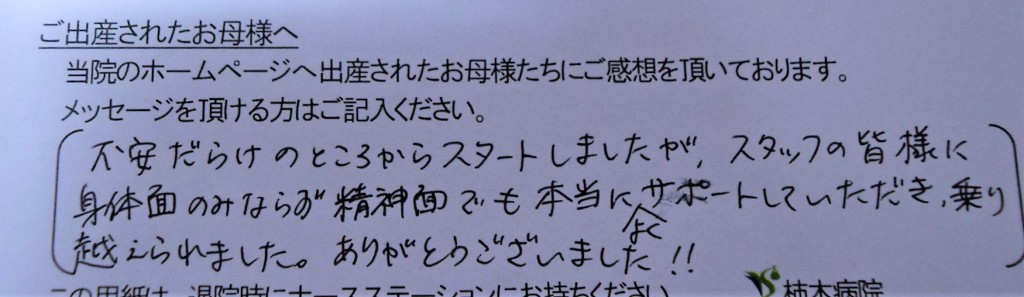 ご出産されたお母様へ
当院のホームページへ出産されたお母様たちにご感想を頂いております。
メッセージを頂ける方はご記入ください。
不安だらけのところからスタートしましたが、スタッフの皆様に
身体面のみならず精神面でも本当によくサポートしていただき、乗り
越えられました。ありがとうございました!!
この用紙は、退院時にナースステーションにお持ちください
柿木病院